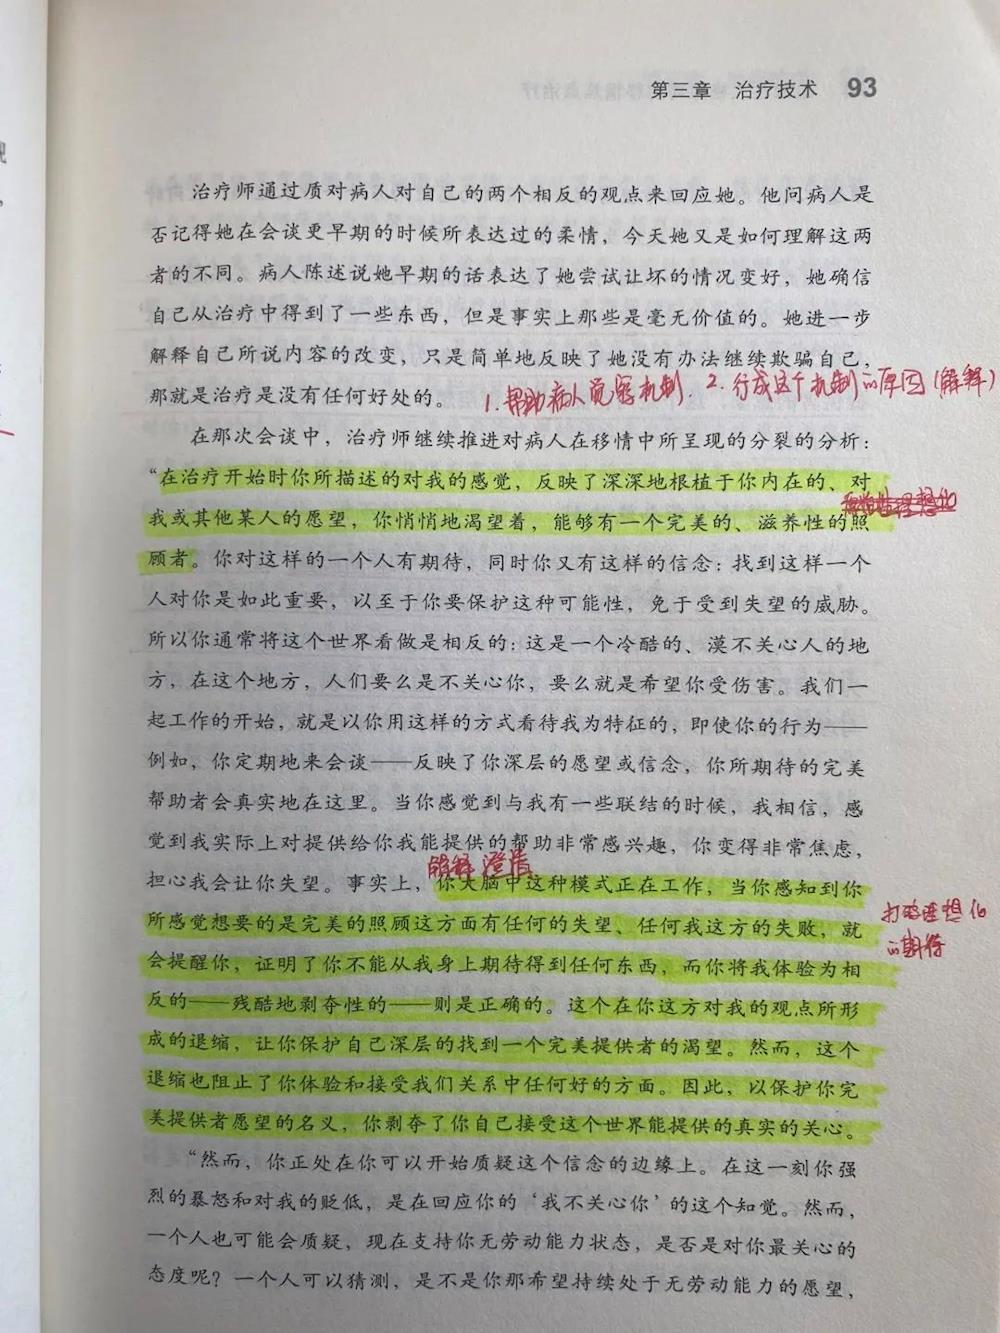 第三章 治疗技术 93
治疗师通过质对病人对自己的两个相反的观点来回应她。他问病人是
否记得她在会谈更早期的时候所表达过的柔情，今天她又是如何理解这两
者的不同。病人陈述说她早期的话表达了她尝试让坏的情况变好，她确信
自己从治疗中得到了一些东西，但是事实上那些是毫无价值的。她进一步
解释自己所说内容的改变，只是简单地反映了她没有办法继续欺骗自己，
那就是治疗是没有任何好处的。
1. 帮助病人觉察机制. 2. 行成这个机制的原因(解释)
在那次会谈中，治疗师继续推进对病人在移情中所呈现的分裂的分析：
“在治疗开始时你所描述的对我的感觉，反映了深深地根植于你内在的、对
我或其他某人的愿望，你悄悄地渴望着，能够有一个完美的、滋养性的照
顾者。你对这样的一个人有期待，同时你又有这样的信念：找到这样一个
人对你是如此重要，以至于你要保护这种可能性，免于受到失望的威胁。
所以你通常将这个世界看做是相反的：这是一个冷酷的、漠不关心人的地
方，在这个地方，人们要么是不关心你，要么就是希望你受伤害。我们一
起工作的开始，就是以你用这样的方式看待我为特征的，即使你的行为——
例如，你定期地来会谈——反映了你深层的愿望或信念，你所期待的完美
帮助者会真实地在这里。当你感觉到与我有一些联结的时候，我相信，感
觉到我实际上对提供给你我能提供的帮助非常感兴趣，你变得非常焦虑，
解释 澄清
担心我会让你失望。事实上，你大脑中这种模式正在工作，当你感知到你
所感觉想要的是完美的照顾这方面有任何的失望、任何我这方的失败，就
打破理想化
的期待
会提醒你，证明了你不能从我身上期待得到任何东西，而你将我体验为相
反的——残酷地剥夺性的——则是正确的。这个在你这方对我的观点所形
成的退缩，让你保护自己深层的找到一个完美提供者的渴望。然而，这个
退缩也阻止了你体验和接受我们关系中任何好的方面。因此，以保护你完
美提供者愿望的名义，你剥夺了你自己接受这个世界能提供的真实的关心。
“然而，你正处在你可以开始质疑这个信念的边缘上。在这一刻你强
烈的暴怒和对我的贬低，是在回应你的‘我不关心你’的这个知觉。然而，
一个人也可能会质疑，现在支持你无劳动能力状态，是否是对你最关心的
态度呢？一个人可以猜测，是不是你那希望持续处于无劳动能力的愿望，